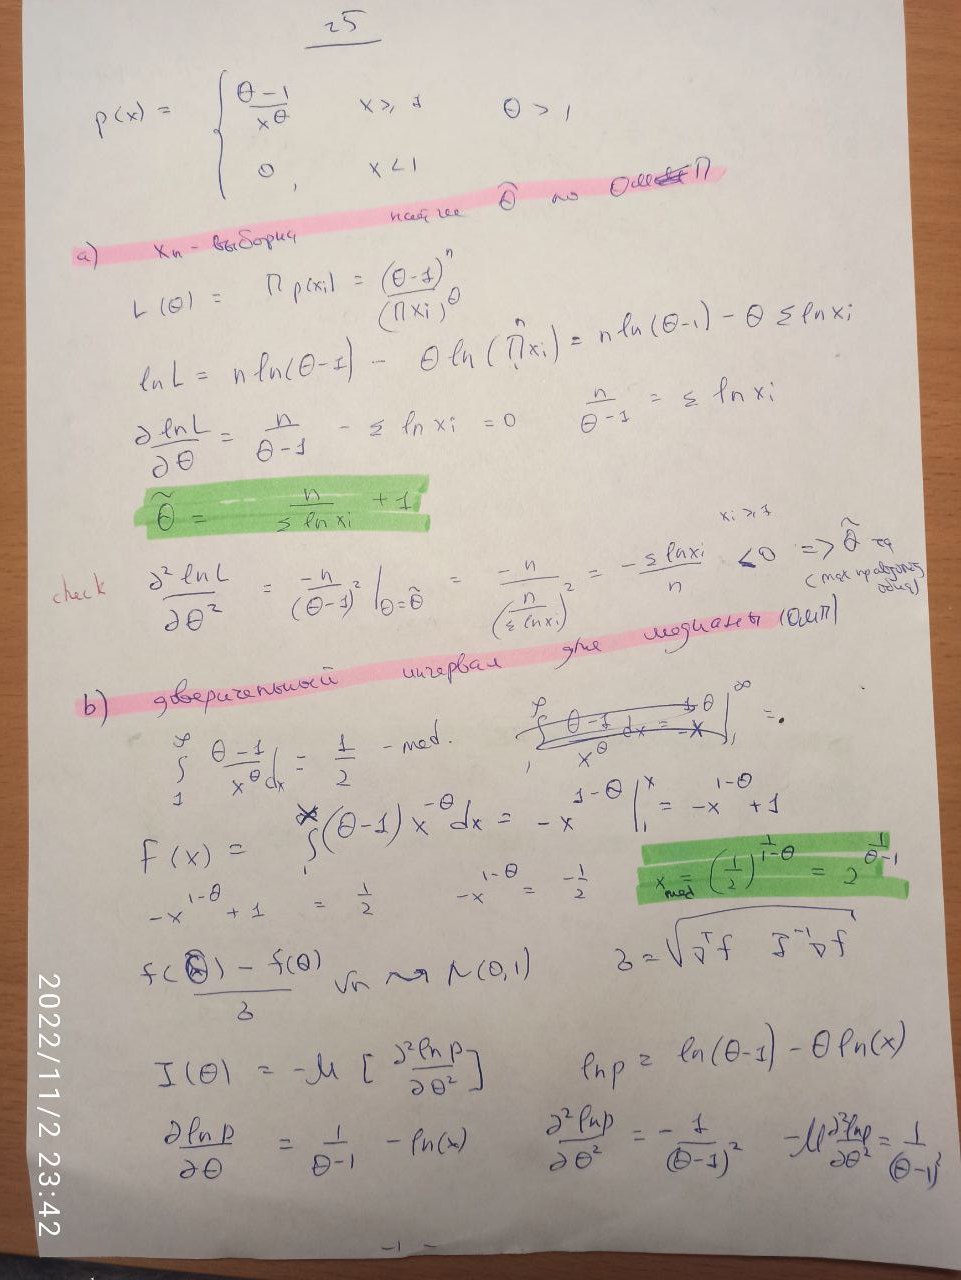 25
p(x) = { (θ-1)/x^θ x ≥ 1 θ > 1
0, x < 1
a) x_n - выборка найти θ̃ по ОМП
L(θ) = Π p(x_i) = (θ-1)^n/(Πx_i)^θ
ln L = n ln(θ-1) - θ ln(Π^n x_i) = n ln(θ-1) - θ Σ ln x_i
∂ ln L/∂θ = n/(θ-1) - Σ ln x_i = 0 n/(θ-1) = Σ ln x_i
θ̃ = n/(Σ ln x_i) + 1
x_i ≥ 1
check ∂² ln L/∂θ² = -n/(θ-1)² |_{θ=θ̃} = -n/(n/(Σ ln x_i))² = - Σ ln x_i/n < 0 => θ̃
b) доверительный интервал для медианы (ОМП)
∫_1 (θ-1)/x^θ dx = 1/2 - med.
F(x) = ∫_1^x (θ-1) x^{-θ} dx = -x^{1-θ} |_1^x = -x^{1-θ} + 1
-x^{1-θ} + 1 = 1/2 -x^{1-θ} = -1/2 x_med = (1/2)^{1/(1-θ)} = 2^{1/(θ-1)}
(f(θ̃) - f(θ))/з √n ⇝ N(0,1) з = √(∇ᵀf I⁻¹ ∇f)
I(θ) = -M [∂² ln p/∂θ²] ln p = ln(θ-1) - θ ln(x)
∂ ln p/∂θ = 1/(θ-1) - ln(x) ∂² ln p/∂θ² = - 1/(θ-1)² -M ∂² ln p/∂θ² = 1/(θ-1)²
-1-
2022/11/2 23:42